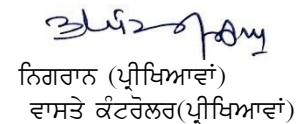 ਨਿਗਰਾਨ (ਪ੍ਰੀਖਿਆਵਾਂ)
ਵਾਸਤੇ ਕੰਟਰੋਲਰ(ਪ੍ਰੀਖਿਆਵਾਂ)